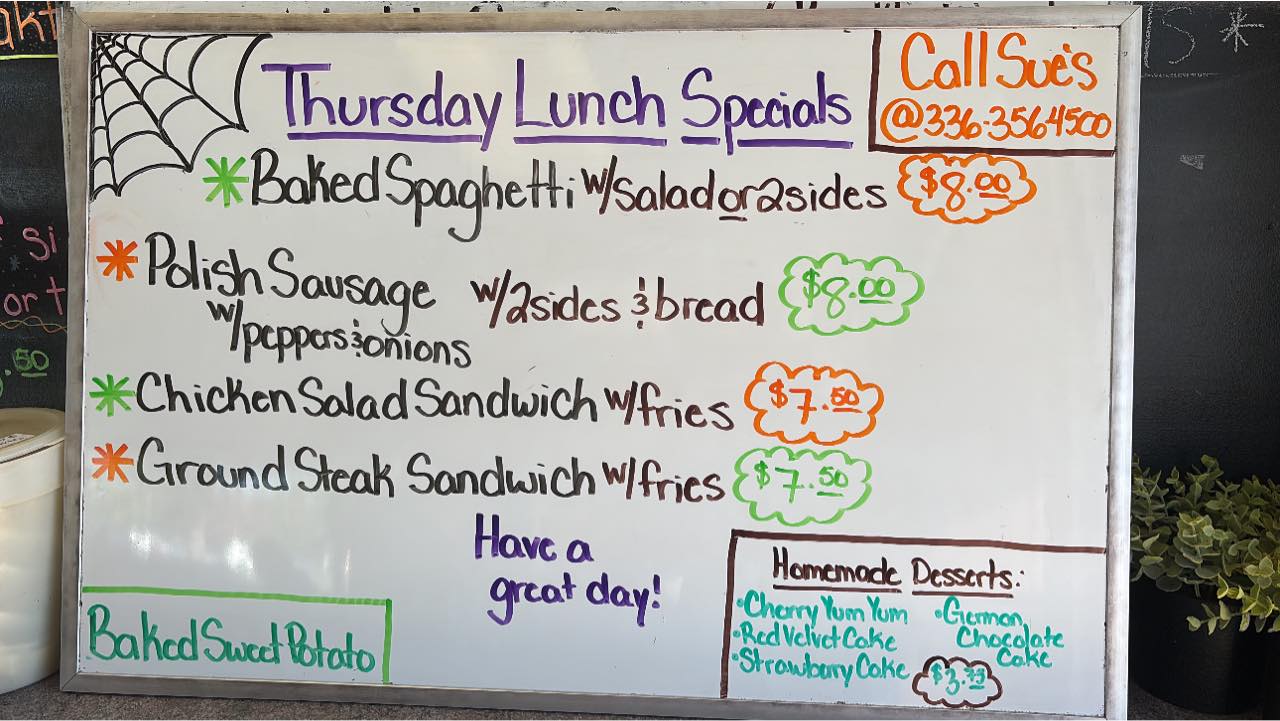 Thursday Lunch Specials
Call Sue's
@336-356-4500
Baked Spaghetti w/salad or 2 sides $8.00
Polish Sausage w/2 sides & bread $8.00
w/peppers & onions
Chicken Salad Sandwich w/fries $7.50
Ground Steak Sandwich w/fries $7.50
Have a
great day!
Baked Sweet Potato
Homemade Desserts:
•Cherry Yum Yum
•Red Velvet Cake
•Strawbury Cake
•German
Chocolate
Cake
or t
.50